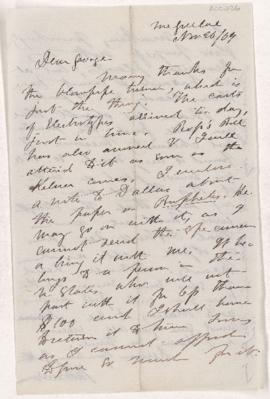 Nov 26/69
Dear George
Many thanks for
the blowpipe         which is
just the thing. The casts
of Electrotypes arrived to day,
just in time.        Bill
has also arrived & I will
attend to it as soon as the
        comes. I enclose
a note to Dallas about
the paper on         He
may go on with it, as I
cannot send the specimen
a bring it with me. It be
longs to a person in the
States who will not
part with it for less than
$100 and I shall have
to return it to him
as I cannot afford
to give so much for it.